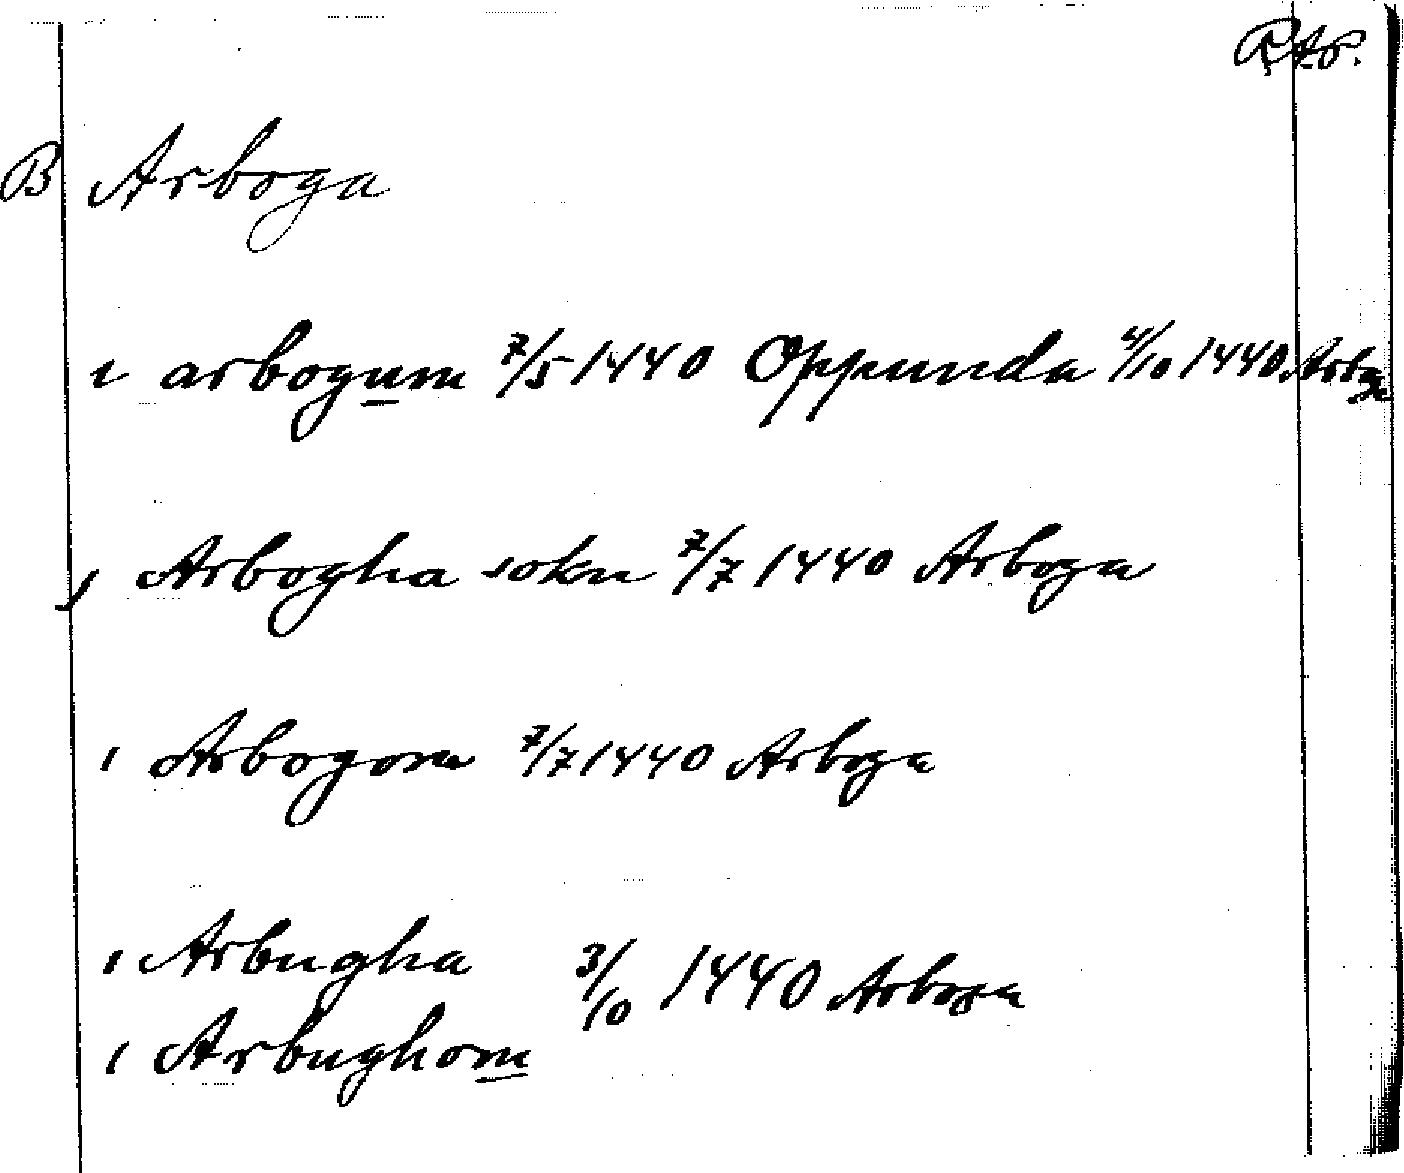 RAP.
B Arboga
i arbogum 7/5 1440 Oppunda 4/10 1440 Arboga
j Arbogha sokn 7/7 1440 Arboga
i Arbogom 7/7 1440 Arboga
i Arbugha 3/10 1440 Arboga
i Arbughom